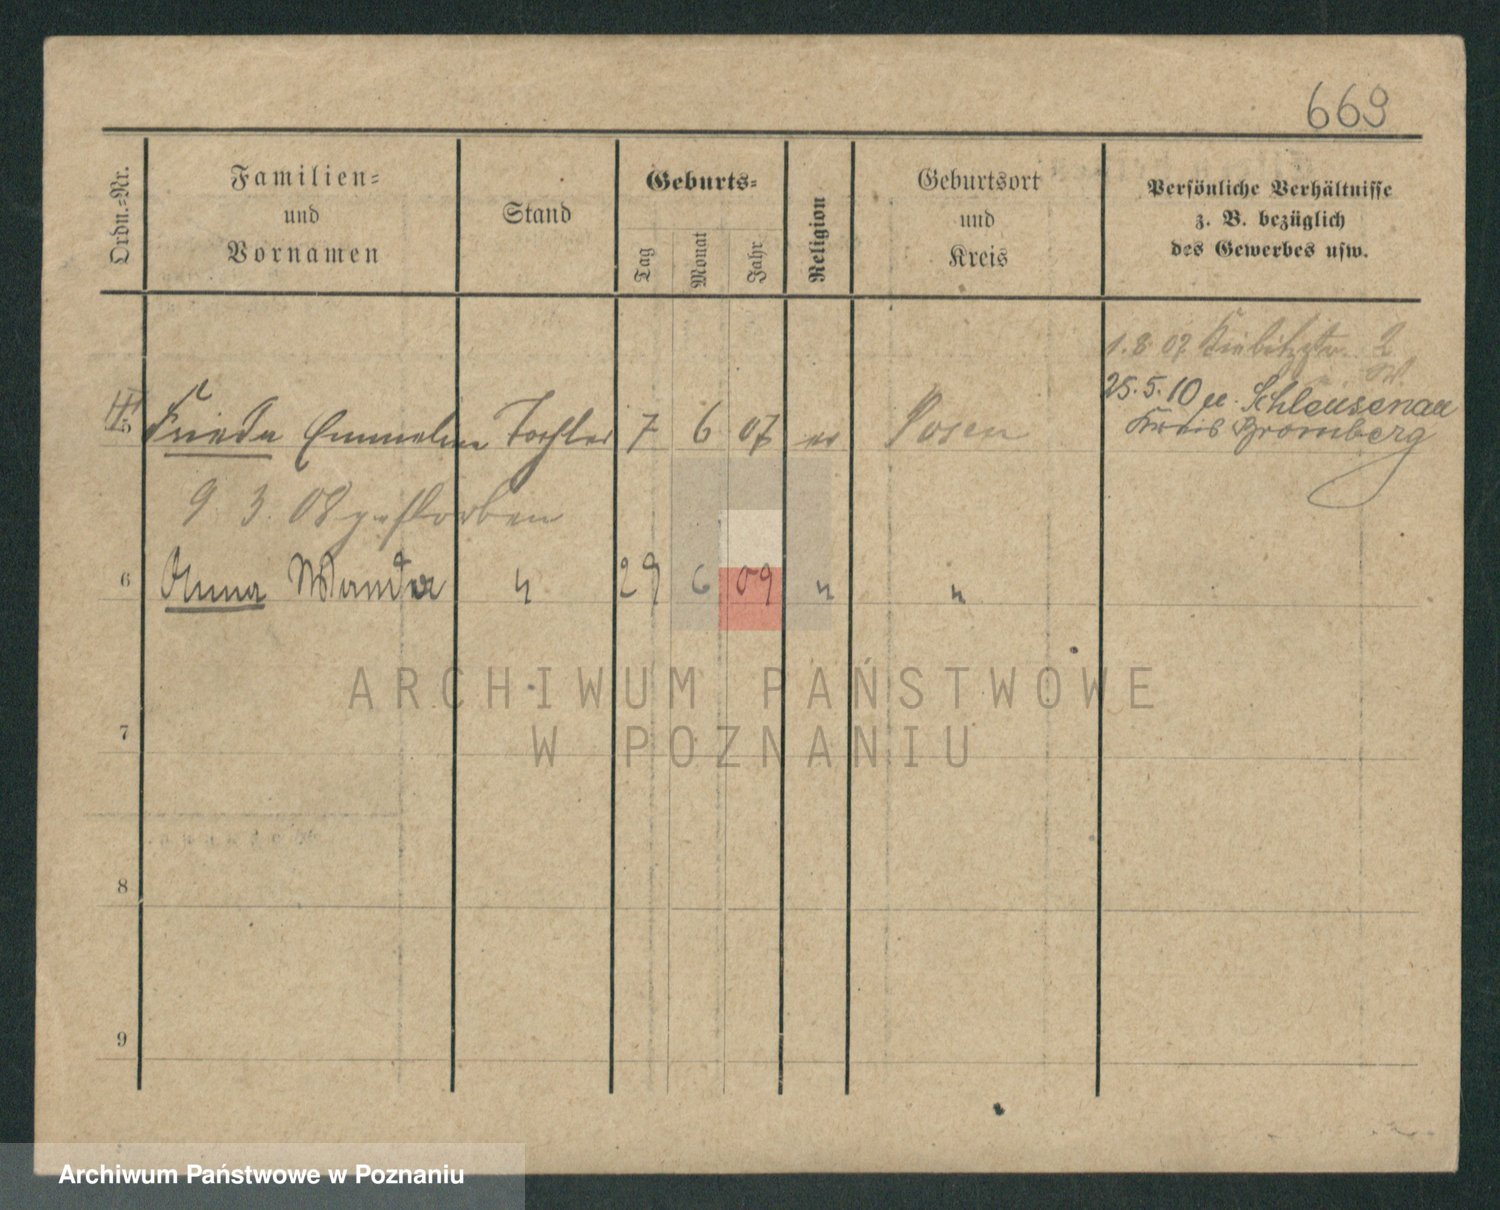 669
Ordn.-Nr.
Familien-
und
Vornamen
Stand
Geburts-
Tag
Monat
Jahr
Religion
Geburtsort
und
Kreis
Persönliche Verhältnisse
z. B. bezüglich
des Gewerbes usw.
1. 8 07 2
25.5.10 Schleusenau
Kreis Bromberg
5 Frieda Tochter 7 6 07 ev Posen
9. 3. 08 gestorben
6 Anna Wanda " 29 6 09 " "
7
8
9
ARCHIWUM PAŃSTWOWE
W POZNANIU
Archiwum Państwowe w Poznaniu